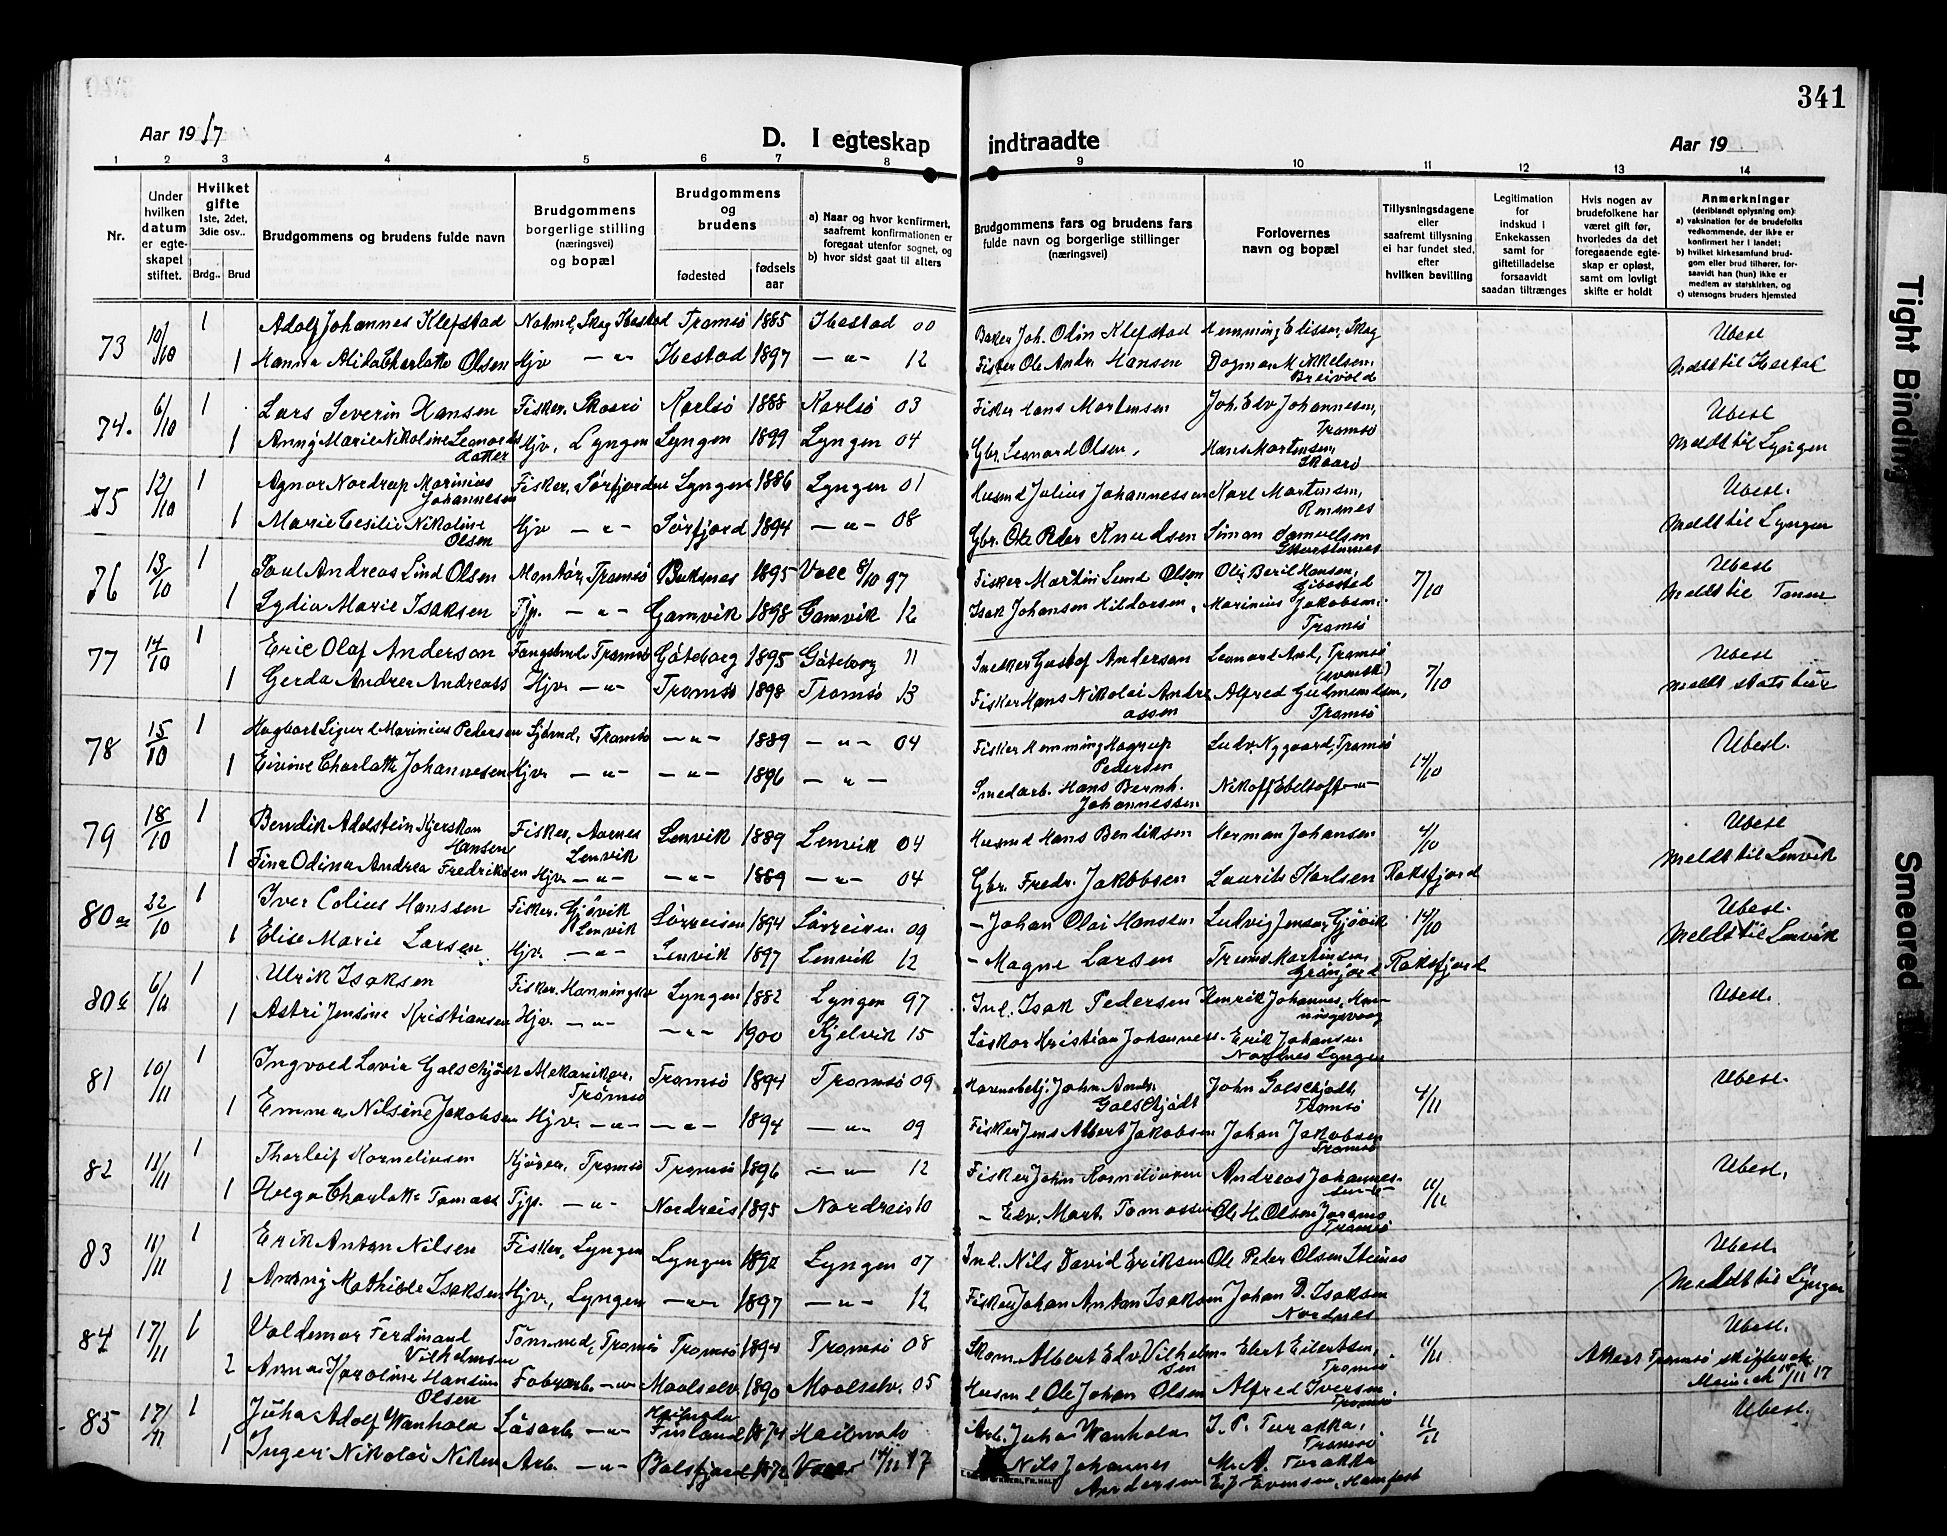 341
Aar 1917
D. I egteskap indtraadte
Aar 19
1 2 3 4 5 6 7 8 9 10 11 12 13 14
Nr.
Under hvilken datum er egteskapet stiftet.
Hvilket gifte 1ste, 2det, 3die osv..
Brdg.. Brud
Brudgommens og brudens fulde navn
Brudgommens borgerlige stilling (næringsvei) og bopæl
Brudgommens og brudens
fødested
fødsels aar
a) Naar og hvor konfirmert, saafremt konfirmationen er foregaat utenfor sognet, og
b) hvor sidst gaat til alters
Brudgommens fars og brudens fars fulde navn og borgerlige stillinger (næringsvei)
Forlovernes navn og bopæl
Tillysningsdagene eller saafremt tillysning ei har fundet sted, efter hvilken bevilling
Legitimation for indskud i Enkekassen samt for giftetilladelse forsaavidt saadan tiltrænges
Hvis nogen av brudefolkene har været gift før, hvorledes da det foregaaende egteskap er opløst, samt om lovligt skifte er holdt
Anmerkninger
(deriblandt oplysning om):
a) vaksination for de brudefolks vedkommende, der ikke er konfirmert her i landet;
b) hvilket kirkesamfund brudgom eller brud tilhører, forsaavidt han (hun) ikke er medlem av statskirken, og
c) utensogns bruders hjemsted
73 10/10 1 Adolf Johannes Klefstad Skog Ibestad Tromsö 1885 Ibestad 00 Baker Joh. Olin Klefstad Hemming Elissen, Skog Ubesl
1 Hanna Charlotte Olsen Hjv — " — Ibestad 1897 — " — 12 Fisker Ole Andr. Hansen Dagmar Mikkelsen, Breivold Meldt til Ibestad
74. 6/10 1 Lars Severin Hansen Fisker, Skaarö Karlsö 1888 Karlsö 03 Fisker Hans Mortensen Joh. Edv Johannesen, Tromsö Ubesl
1 Anny Marie Nikoline Leonards datter Hjv, Lyngen Lyngen 1899 Lyngen 04 Gbr. Leonard Olsen, Hans Mortensen, Skaarö Meldt til Lyngen
75 12/10 1 Agnor Nordrup Marinius Johannesen Fisker, Sörfjorden Lyngen 1886 Lyngen 01 Husmd Julius Johannessen Karl Mortensen, Ubesl.
1 Marie Cesilie Nikoline Olsen Hjv — " — Sörfjord 1894 — " — 08 Gbr. Ole Peder Knudsen Simon Samuelsen Meldt til Lyngen
76 13/10 1 Paul Andreas Lind Olsen Montör, Tromsö Buksnes 1895 8/10 97 Fisker Martin Lund Olsen Ole Beril Hansen, Gibostad 7/10 Ubesl
1 Lydia Marie Isaksen Tjp. — " — Gamvik 1898 Gamvik 12 Isak Johansen Hildorsen, Marinius Jakobsen, Tromsö Meldt til Tanen
77 14/10 1 Eric Olaf Anderson Fangstmd. Tromsö Göteborg 1895 Göteborg 11 Snekker Gustof Anderson Leonard Axel, Tromsö (svensk) 7/10 Ubesl
1 Gerda Andrea Andreass Hjv. — " — Tromsö 1898 Tromsö 13 Fisker Hans Nikolai Andreassen Alfred Gudmundsen, Tromsö Meldt
78 15/10 1 Hagbart Sigurd Marinius Pedersen Sjömd, Tromsö — " — 1889 — " — 04 Fisker Hemming Hagrup Pedersen Ludv. Nygaard, Tromsö 14/10 Ubesl.
1 Eivine Charlotte Johannesen Hjv. — " — — " — 1896 — " — Smedarb. Hans Bernh. Johannessen Nikoff Ebeltoft — " —
79 18/10 1 Bendik Adelstein Kjerskon Hansen Fisker, Aarnes Lenvik Lenvik 1889 Lenvik 04 Husmd Hans Bendiksen Herman Johansen 4/10 Ubesl
1 Tina Odina Andrea Fredriksen Hjv. — " — — " — 1889 — " — 04 Gbr. Fredr. Jakobsen Laurits Karlsen Roksfjord Meldt til Lenvik
80a 22/10 1 Iver Colius Hanssen Fisker, Gjövik Lenvik Sörreisen 1894 Sörreisen 09 — Johan Olai Hansen Ludvig Jensen, Gjövik 14/10 Ubesl.
1 Elise Marie Larsen Hjv. — " — Lenvik 1897 Lenvik 12 — Magne Larsen Troms Martinsen, Grönjord Roksfjord Meldt til Lenvik
80b 6/11 1 Ulrik Isaksen Fisker, Honningsv Lyngen 1882 Lyngen 97 Inl. Isak Pedersen Henrik Johannes, Honningsvaag Ubesl.
1 Astri Jensine Kristiansen Hjv. — " — — " — 1900 Kjelvik 15 Kristian Johannes. Erik Johansen Nordnes Lyngen
81 10/11 1 Ingvald Lovin Golschjödt Mekaniker, Tromsö Tromsö 1894 Tromsö 09 Havnebetj. John Andr. Golschjödt John Golschjödt, Tromsö 4/11 Ubesl.
1 Emma Nilsine Jakobsen Hjv. — " — — " — 1894 — " — 09 Fisker Jens Albert Jakobsen Johan Jakobsen Tromsö
82 12/11 1 Thorleif Korneliusen Kjörer, Tromsö Tromsö 1896 — " — 12 Fisker John Korneliusen Andreas Johannessen — " — 11/11 Ubesl.
1 Helga Charlotte Tomass Tjp. — " — Nordreis 1895 Nordreis 10 — Edv. Mart. Tomassen Ole H. Olsen Tromsö
83 11/11 1 Erik Antan Nilsen Fisker, Lyngen Lyngen 1892 Lyngen 07 Inl. Nils David Eriksen Ole Peder Olsen Steines Ubesl.
1 Anny Mathilde Isaksen Hjv, Lyngen — " — 1897 — " — 12 Fisker Johan Antan Isaksen Johan D. Isaksen Nordnes Meldt til Lyngen
84 17/11 1 Valdemar Ferdinand Vilhelmsen Tömmermd, Tromsö Tromsö 1894 Tromsö 08 Skom. Albert Edv. Vilhelmsen Elert Eilertsen, Tromsö 11/11 Ubesl.
2 Anna Karoline Hansine Olsen Fabrarb. — " — Maalselv. 1890 Maalselv. 05 Husmd Ole Johan Olsen Alfred Iversen, Tromsö Attest Tromsö skifterett 17/11 17
85 17/11 1 Juho Adolf Wanhala Lösarb. — " — Finland 1874 Arb. Juho Wanhala I. P. Turakka, Tromsö 11/11 Ubesl.
1 Inger Nikolai Nilsen Arb. — " — Balsfjord 1872 14/11 17 Nils Johannes Andersen M. A. Turakka Evensen, Hamfest
Tight Binding
Smeared